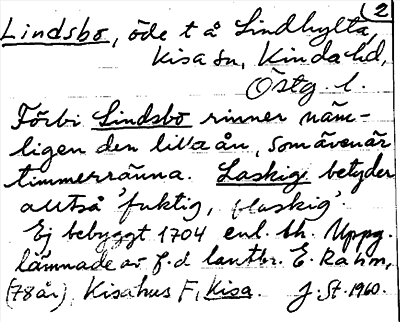 2
Lindsbo, öde t å Lindhylta,
Kisa sn, Kinda hd,
Östg. l.
Förbi Lindsbo rinner näm-
ligen den lilla ån, som även är
timmerränna. Laskig betyder
alltså 'fuktig, flaskig'.
Ej bebyggt 1704 enl. lh. Uppg.
lämnade av f.d lantbr. E. Rahm,
(78 år), Kisahus F, Kisa. J. St. 1960.